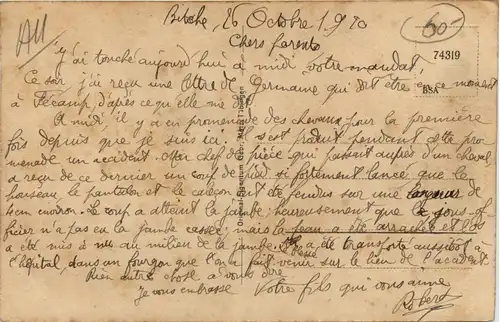 All
60-
Bitche, 26 Octobre 1920
Chers parents
74319
BSA
j'ai touché aujourd'hui à midi votre mandat,
Ce soir j'ai reçu une lettre de Germaine qui doit être en ce moment
à Fécamp, d'après ce qu'elle me dit.
A midi, il y a en promenade des chevaux pour la première
fois depuis que je suis ici. Il s'est produit pendant cette pro-
menade un accident. Mon chef de pièce qui passait auprès d'un cheval
a reçu de ce dernier un coup de pied si fortement lancé que le
houseau, le pantalon et le caleçon ont été fendus sur une longueur de
environ. Le coup a atteint la jambe; heureusement que le sous-of
ficier n'a pas eu la jambe cassée; mais la peau a été arrachée et l'os
a été mis à nu au milieu de la jambe. Il a été transporté aussitôt à
l'hôpital, dans un fourgon que l'on a fait venir sur le lieu de l'accident
Rien autre chose à vous dire
Je vous embrasse Votre fils qui vous aime
Robert
Original-Eigentum Gebr. Metz, Tübingen